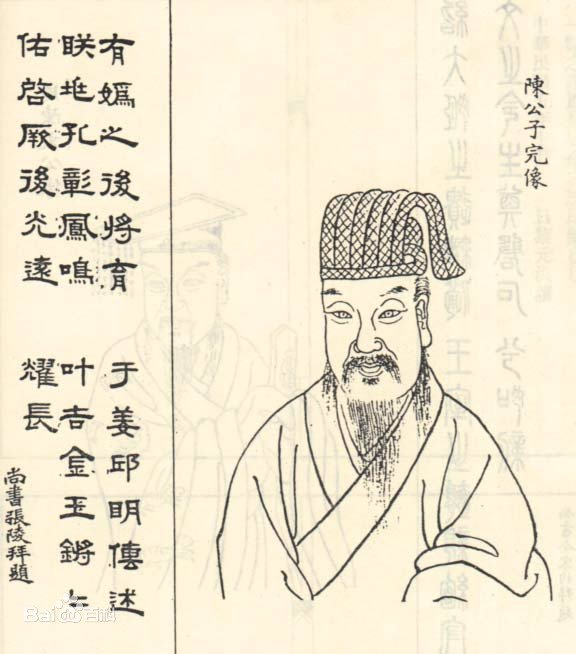 陳公子完像
有嬀之後將育于姜邱明傳述
眹兆孔彰鳳鳴叶吉金玉鏘々
佑啓厥後光遠耀長
尚書張陵拜題
Bai百科